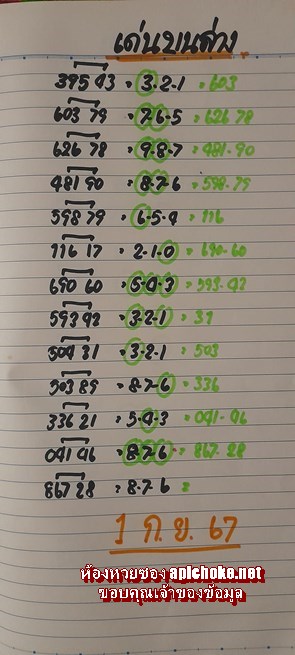 เด่นบนล่าง
395 43 = 3.2.1 = 603
603 79 = 7.6.5 = 626 78
626 78 = 9.8.7 = 481.90
481 90 = 8.7.6 = 598.79
598 79 = 6.5.4 = 116
116 17 = 2.1.0 = 690.60
690 60 = 5.4.3 = 593.42
593 42 = 3.2.1 = 31
504 31 = 3.2.1 = 503
503 85 = 8.7.6 = 336
336 21 = 5.4.3 = 041.46
041 46 = 8.7.6 = 867.28
867 28 = 8.7.6 =
1 ก.ย. 67
ห้องหวยซอง aplchoke.net
ขอบคุณเจ้าของข้อมูล